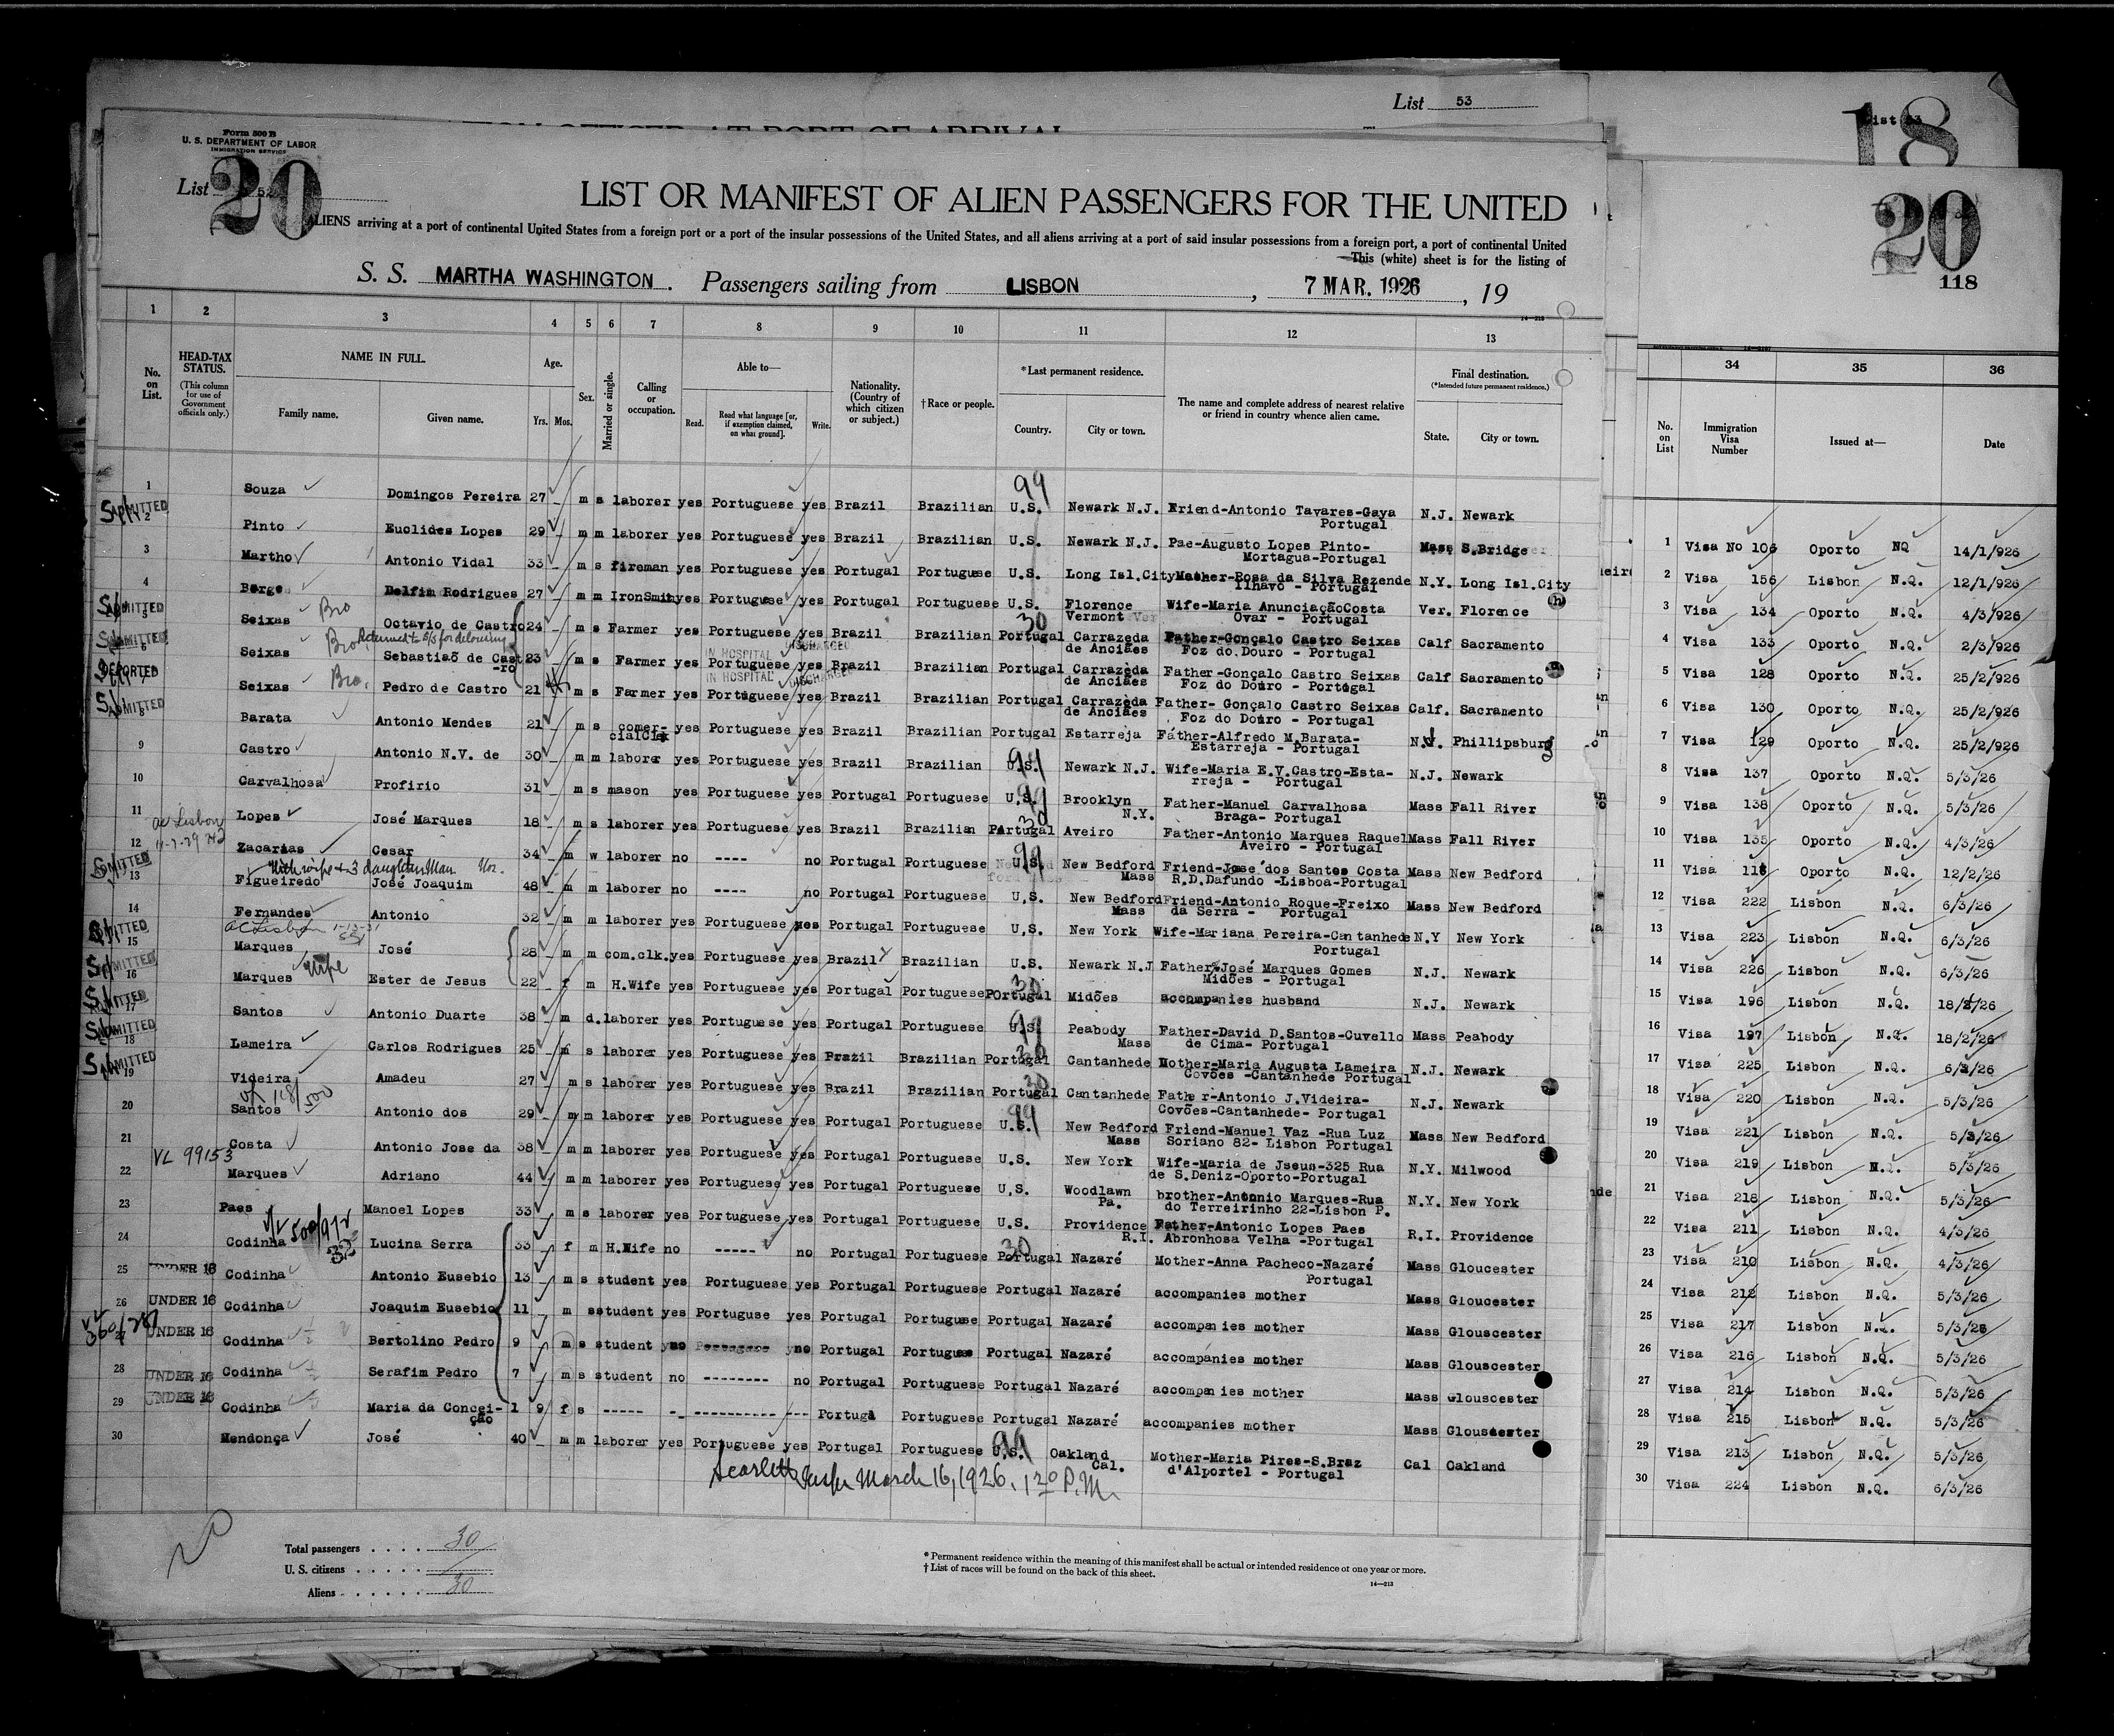 List 53
Form 500 B
U. S. DEPARTMENT OF LABOR
IMMIGRATION SERVICE
List 52
20
LIST OR MANIFEST OF ALIEN PASSENGERS FOR THE UNITED
ALIENS arriving at a port of continental United States from a foreign port or a port of the insular possessions of the United States, and all aliens arriving at a port of said insular possessions from a foreign port, a port of continental United
This (white) sheet is for the listing of
S. S. MARTHA WASHINGTON. Passengers sailing from LISBON, 7 MAR. 1926, 19
1 2 3 4 5 6 7 8 9 10 11 12 13
No. on List. HEAD-TAX STATUS. (This column for use of Government officials only.) NAME IN FULL. Family name. Given name. Age. Yrs. Mos. Sex. Married or single. Calling or occupation. Able to— Read. Read what language [or, if exemption claimed, on what ground]. Write. Nationality. (Country of which citizen or subject.) †Race or people. *Last permanent residence. Country. City or town. The name and complete address of nearest relative or friend in country whence alien came. Final destination. (*Intended future permanent residence.) State. City or town.
1 Souza Domingos Pereira 27 m s laborer yes Portuguese yes Brazil Brazilian U.S. 99 Newark N.J. Friend-Antonio Tavares-Gaya Portugal N.J. Newark
ADMITTED 2 Pinto Euclides Lopes 29 m m laborer yes Portuguese yes Brazil Brazilian U.S. Newark N.J. Pae-Augusto Lopes Pinto- Mortagua-Portugal Mass S.Bridge
3 Martho Antonio Vidal 33 m s fireman yes Portuguese yes Portugal Portuguese U.S. Long Isl.City Mother-Rosa da Silva Rezende Ilhavo - Portugal N.Y. Long Isl.City
4 Borge Delfim Rodrigues 27 m m IronSmith yes Portuguese yes Portugal Portuguese U.S. Florence Vermont Wife-Maria AnunciaçãoCosta Ovar - Portugal Ver. Florence
ADMITTED 5 Seixas Bro Octavio de Castro 24 m s Farmer yes Portuguese yes Brazil Brazilian Portugal 30 Carrazeda de Anciães Father-Gonçalo Castro Seixas Foz do Douro - Portugal Calf Sacramento
ADMITTED 6 Seixas Bro. Sebastiaõ de Cast-ro 23 m s Farmer yes IN HOSPITAL DISCHARGED Portuguese yes Brazil Brazilian Portugal Carrazèda de Anciães Father-Gonçalo Castro Seixas Foz do Douro - Portugal Calf Sacramento
DEPORTED 7 Seixas Bro. Pedro de Castro 21 m s Farmer yes IN HOSPITAL DISCHARGED Portuguese yes Brazil Brazilian Portugal Carrazèda de Anciães Father- Gonçalo Castro Seixas Foz do Douro - Portugal Calf. Sacramento
ADMITTED 8 Barata Antonio Mendes 21 m s comer-cialClk yes Portuguese yes Brazil Brazilian Portugal Estarreja Father-Alfredo M.Barata- Estarreja - Portugal N.J. Phillipsburg
9 Castro Antonio N.V. de 30 m m laborer yes Portuguese yes Brazil Brazilian U.S. 99 Newark N.J. Wife-Maria E.V.Castro-Esta-rreja - Portugal N.J. Newark
10 Carvalhosa Profirio 31 m s mason yes Portuguese yes Portugal Portuguese U.S. 99 Brooklyn N.Y. Father-Manuel Carvalhosa Braga- Portugal Mass Fall River
11 Lopes José Marques 18 m s laborer yes Portuguese yes Brazil Brazilian Portugal 30 Aveiro Father-Antonio Marques Raquel Aveiro - Portugal Mass Fall River
12 Zacarias Cesar 34 m w laborer no ---- no Portugal Portuguese U.S. 99 New Bedford Mass Friend-José dos Santos Costa R.D.Dafundo -Lisboa-Portugal Mass New Bedford
With wife & 3 daughters
ADMITTED 13 Figueiredo José Joaquim 48 m m laborer no ---- no Portugal Portuguese U.S. New Bedford Mass Friend-Antonio Roque-Freixo da Serra - Portugal Mass New Bedford
14 Fernandes Antonio 32 m m laborer yes Portuguese yes Portugal Portuguese U.S. New York Wife-Mariana Pereira-Cantanhede Portugal N.Y New York
ADMITTED 15 Marques José 28 m m com.clk. yes Portuguese yes Brazil Brazilian U.S. Newark N.J Father José Marques Gomes Midões - Portugal N.J. Newark
ADMITTED 16 Marques wife Ester de Jesus 22 f m H.Wife yes Portuguese yes Portugal Portuguese Portugal 30 Midões accompanies husband N.J. Newark
ADMITTED 17 Santos Antonio Duarte 38 m d. laborer yes Portuguese yes Portugal Portuguese U.S. 99 Peabody Mass Father-David D.Santos-Cuvello de Cima- Portugal Mass Peabody
ADMITTED 18 Lameira Carlos Rodrigues 25 m s laborer yes Portuguese yes Brazil Brazilian Portugal 30 Cantanhede Mother-Maria Augusta Lameira Covões -Cantanhede Portugal N.J. Newark
ADMITTED 19 Videira Amadeu 27 m s laborer yes Portuguese yes Brazil Brazilian Portugal 30 Cantanhede Father-Antonio J.Videira- Covões-Cantanhede- Portugal N.J. Newark
20 Santos Antonio dos 29 m m laborer yes Portuguese yes Portugal Portuguese U.S. 99 New Bedford Mass Friend-Manuel Vaz -Rua Luz Soriano 82- Lisbon Portugal Mass New Bedford
21 Costa Antonio Jose da 38 m m laborer yes Portuguese yes Portugal Portuguese U.S. New York Wife-Maria de Jseus-325 Rua de S.Deniz-Oporto-Portugal N.Y. Milwood
VL 99153
22 Marques Adriano 44 m m laborer yes Portuguese yes Portugal Portuguese U.S. Woodlawn Pa. brother-Antonio Marques-Rua do Terreirinho 22-Lisbon P. N.Y. New York
23 Paes Manoel Lopes 33 m s laborer yes Portuguese yes Portugal Portuguese U.S. Providence R.I. Father-Antonio Lopes Paes Abronhosa Velha -Portugal R.I. Providence
24 Codinha Lucina Serra 33 f m H.Wife no ----- no Portugal Portuguese Portugal 30 Nazaré Mother-Anna Pacheco-Nazaré Portugal Mass Gloucester
25 UNDER 16 Codinha Antonio Eusebio 13 m s student yes Portuguese yes Portugal Portuguese Portugal Nazaré accompanies mother Mass Gloucester
26 UNDER 16 Codinha Joaquim Eusebio 11 m s student yes Portuguse yes Portugal Portuguese Portugal Nazaré accompanies mother Mass Glouscester
27 UNDER 16 Codinha Bertolino Pedro 9 m s student no no Portugal Portuguese Portugal Nazaré accompanies mother Mass Glouscester
28 UNDER 16 Codinha Serafim Pedro 7 m s student no -------- no Portugal Portuguese Portugal Nazaré accompanies mother Mass Glouscester
29 UNDER 16 Codinha Maria da Concei-ção 1 9 f s ----- -- ---------- --- Portugal Portuguese Portugal Nazaré accompanies mother Mass Glouscester
30 Mendonça José 40 m m laborer yes Portuguese yes Portugal Portuguese U.S. 99 Oakland Cal. Mother-Maria Pires-S.Braz d'Alportel - Portugal Cal Oakland
March 16, 1926. 1 20 P.M.
Total passengers . . . . . 30
U.S. citizens . . . . . .
Aliens . . . . . . 30
* Permanent residence within the meaning of this manifest shall be actual or intended residence of one year or more.
† List of races will be found on the back of this sheet.
14—213
18
List 53
20
118
34 35 36
No. on List Immigration Visa Number Issued at— Date
1 Visa No 106 Oporto NQ 14/1/926
2 Visa 156 Lisbon N.Q. 12/1/926
3 Visa 134 Oporto N.Q. 4/3/926
4 Visa 133 Oporto N.Q. 2/3/926
5 Visa 128 Oporto N.Q. 25/2/926
6 Visa 130 Oporto N.Q. 25/2/926
7 Visa 129 Oporto N.Q. 25/2/926
8 Visa 137 Oporto N.Q. 5/3/26
9 Visa 138 Oporto N.Q. 5/3/26
10 Visa 135 Oporto N.Q. 4/3/26
11 Visa 118 Oporto N.Q. 12/2/26
12 Visa 222 Lisbon N.Q. 6/3/26
13 Visa 223 Lisbon N.Q. 6/3/26
14 Visa 226 Lisbon N.Q. 6/3/26
15 Visa 196 Lisbon N.Q. 18/2/26
16 Visa 197 Lisbon N.Q. 18/2/26
17 Visa 225 Lisbon N.Q. 6/3/26
18 Visa 220 Lisbon N.Q. 5/3/26
19 Visa 221 Lisbon N.Q. 5/3/26
20 Visa 219 Lisbon N.Q. 5/3/26
21 Visa 218 Lisbon N.Q. 5/3/26
22 Visa 211 Lisbon N.Q. 4/3/26
23 Visa 210 Lisbon N.Q. 4/3/26
24 Visa 212 Lisbon N.Q. 5/3/26
25 Visa 217 Lisbon N.Q. 5/3/26
26 Visa 216 Lisbon N.Q. 5/3/26
27 Visa 214 Lisbon N.Q. 5/3/26
28 Visa 215 Lisbon N.Q. 5/3/26
29 Visa 213 Lisbon N.Q. 5/3/26
30 Visa 224 Lisbon N.Q. 6/3/26